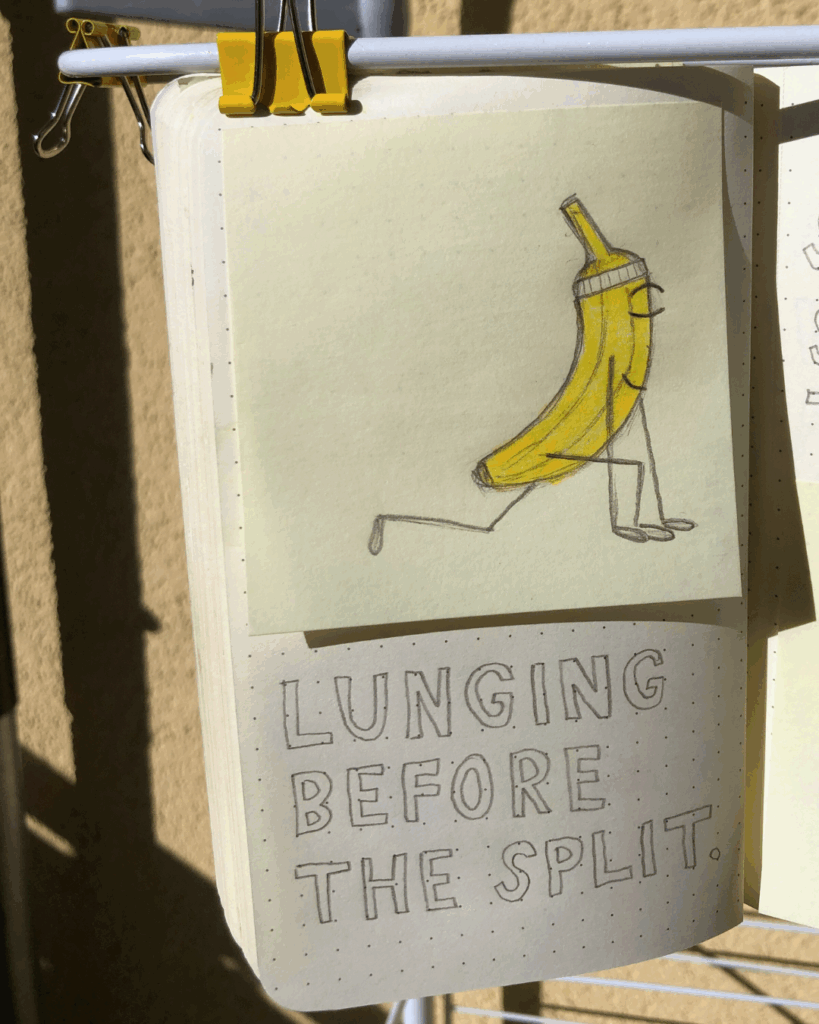 LUNGING
BEFORE
THE SPLIT.